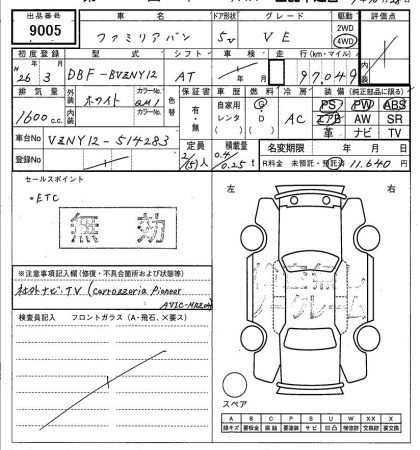 出品番号 車名 ドア形状 グレード 駆動 評価点
9005 ファミリアバン 5v VE 2WD 4WD
初度登録 型式 シフト 車検 走行(km・マイル)
H26 3 DBF-BVZNY12 AT 年 月 97,049
排気量 外装 カラーNo. 色替 保証書 車歴 燃料 冷房 装備(純正部品に限る)
1600 c.c. ホワイト QM1 有・無 自家用 レンタ G・D AC PS PW ABS
内装 カラーNo. エアB AW SR
革 ナビ TV
車台No VZNY12-514283 定員 2/(5)人 積載量 0.4/0.25t 名変期限 年 月 日
登録No R料金 未預託・預託済 11,640円
セールスポイント 左 右
・ETC
無効
※注意事項記入欄(修復・不具合箇所および状態等)
社外ナビ・TV (carrozzeria Pioneer
検査員記入 フロントガラス(A・飛石、×要ス)
スペア
A B C P S U W X XX
線キズ 要板金 腐蝕 要塗装 サビ 凹凸 補修跡 交換跡 要交換